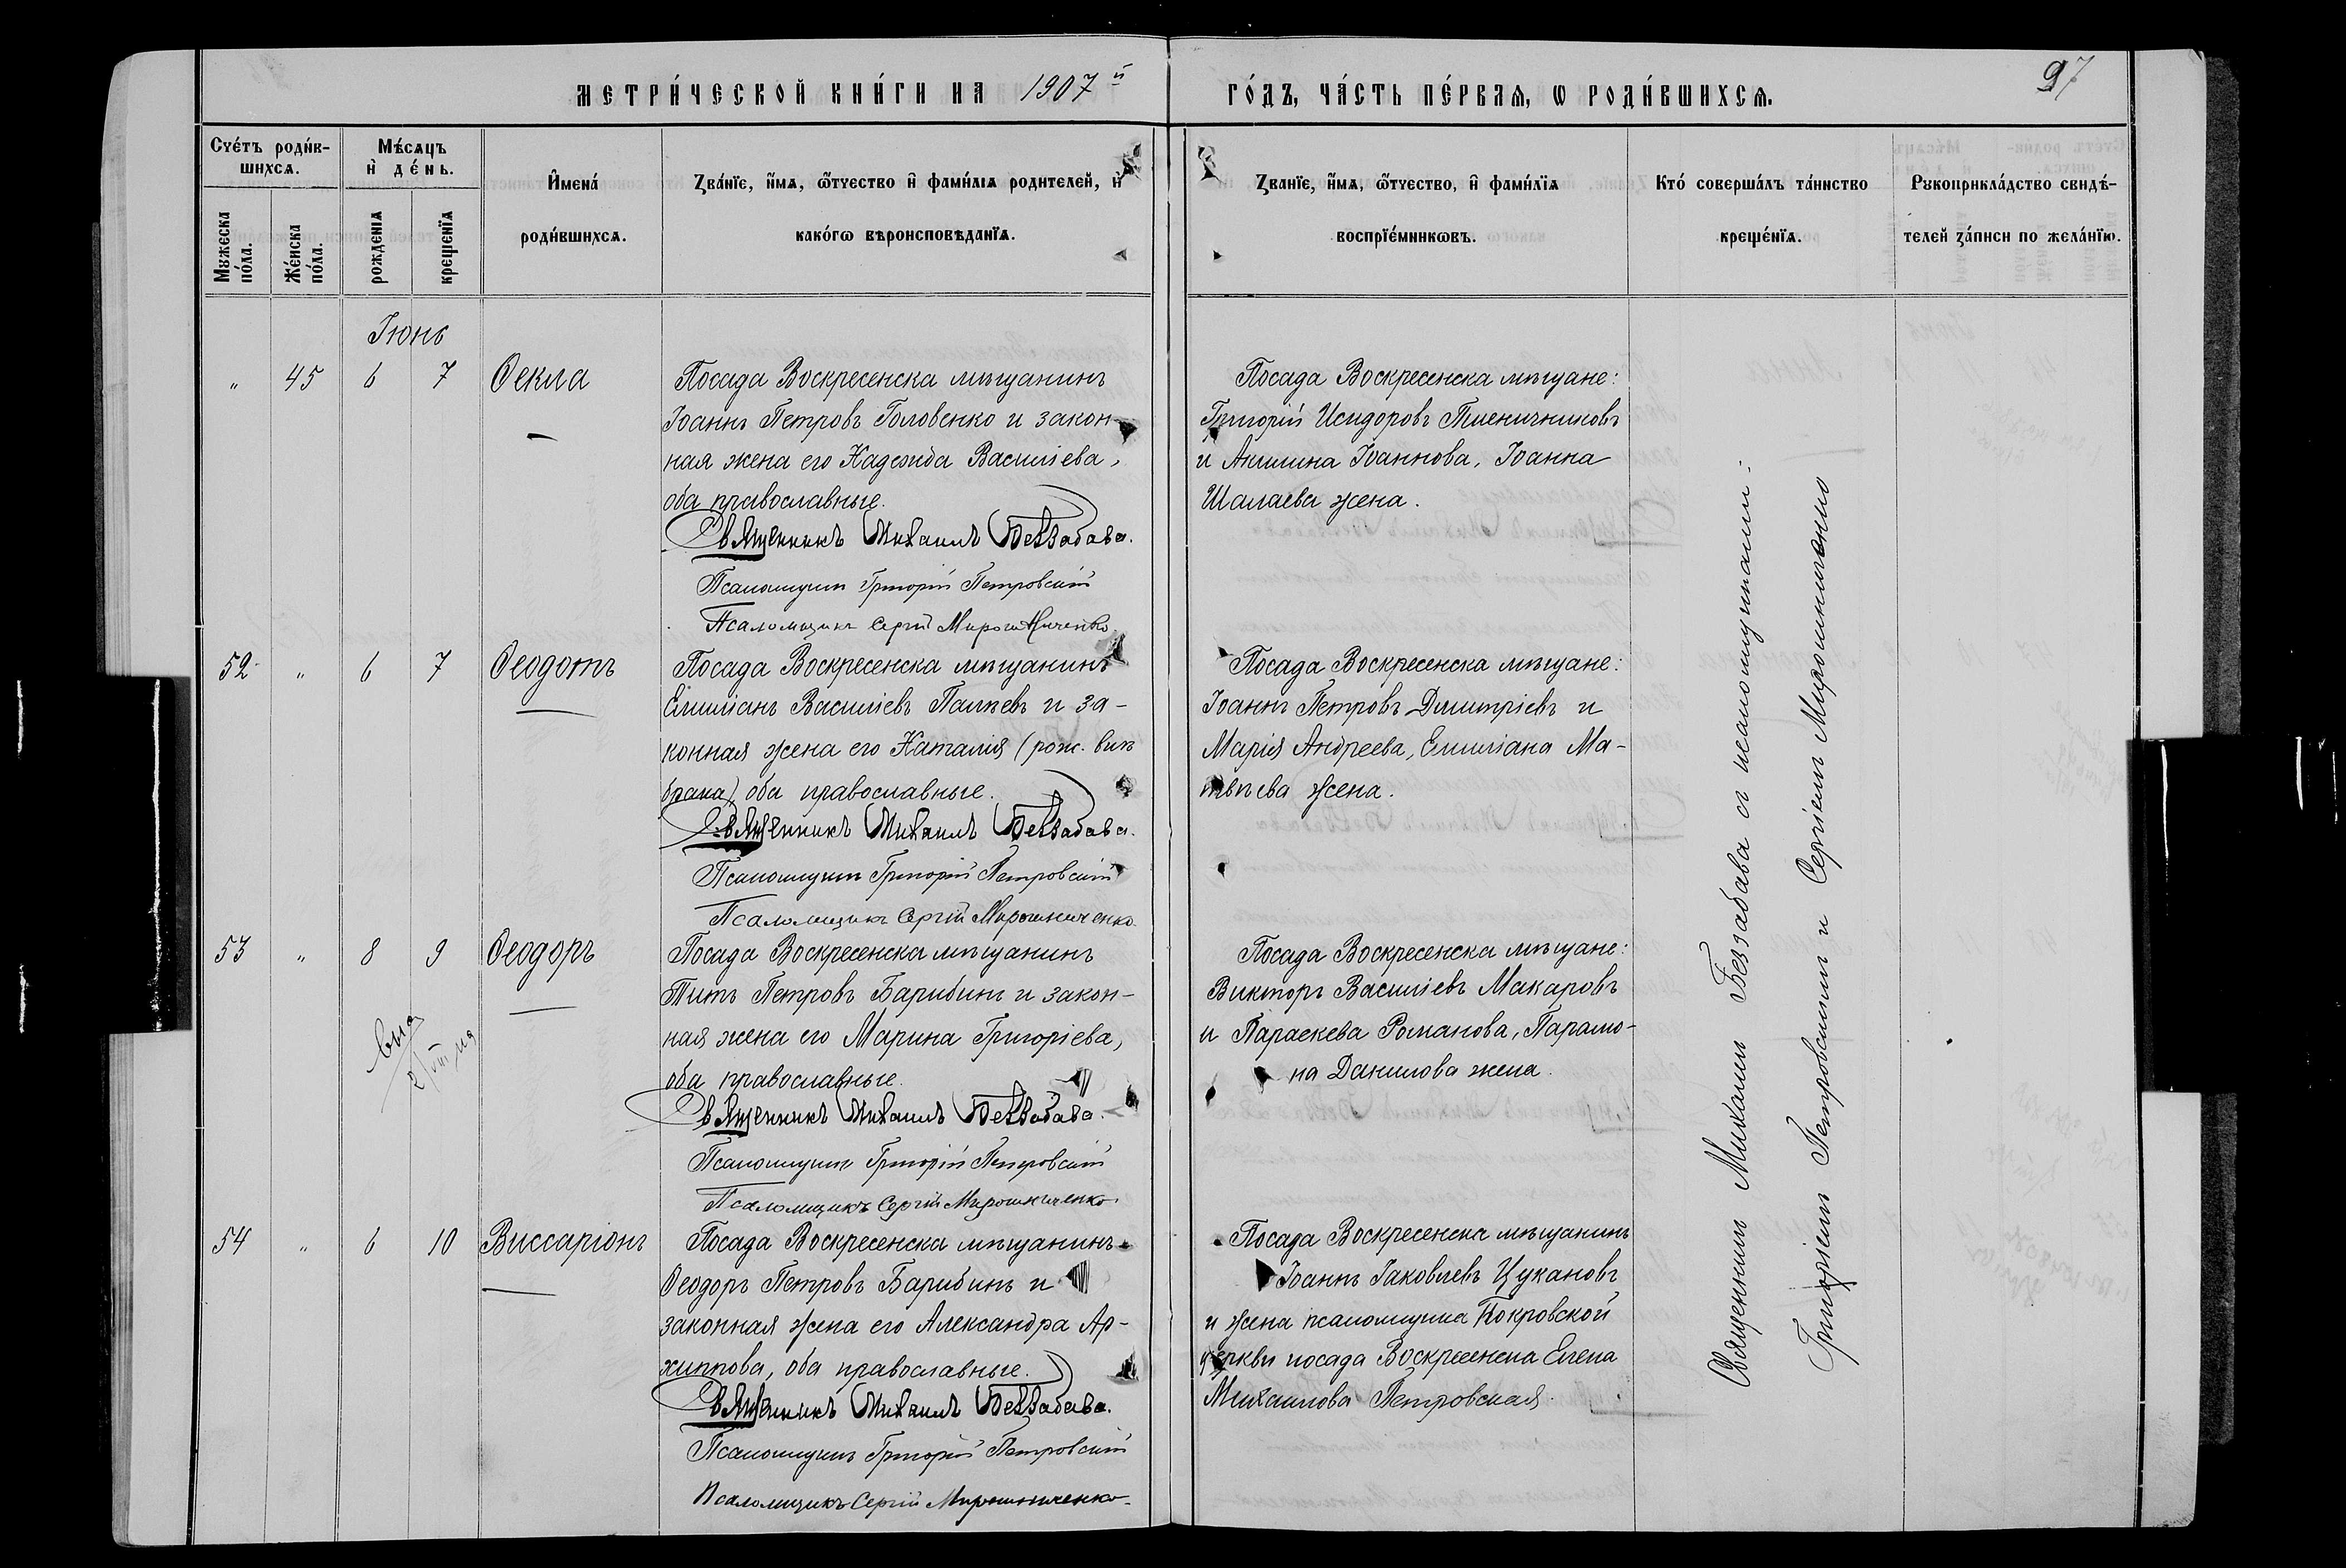 МЕТРИ́ЧЕСКОЙ КНИ́ГИ НА 1907й
ГО́ДЪ, ЧА́СТЬ ПЕ́РВАѦ, Ѡ РОДИ́ВШИХСѦ.
97
Счéтъ роди́в-
шихсѧ.
Мꙋжеска
по́ла.
Же́нска
по́ла.
Мѣ́сѧцъ
и҆ де́нь.
рожденїѧ
крещенїѧ
И҆мена́
роди́вшихсѧ.
Зва́нїе, и҆́мѧ, ѻ҆́тчество и҆ фами́лїѧ родителей, и҆
како́гѡ вѣроисповѣданїѧ.
Званїе, и҆́мѧ, ѻ҆́тчество, и҆ фами́лїѧ
воспрїе́мникѡвъ.
Кто́ соверша́лъ та́инство
креще́нїѧ.
Рꙋкоприкла́дство свидѣ́-
телей за́писи по жела́нїю.
Іюнь
" 45 6 7 Ѳекла
Посада Воскресенска мѣщанинъ
Іоаннъ Петровъ Головенко и закон-
ная жена его Надежда Василіева,
оба православные.
Священникъ Михаилъ Беззабава.
Псаломщикъ Григорій Петровскій
Псаломщикъ Сергій Мирошниченко
Посада Воскресенска мѣщане:
Григорій Исидоровъ Пшеничниковъ
и Акилина Іоаннова, Іоанна
Шалаева жена.
52 " 6 7 Ѳеодотъ
Посада Воскресенска мѣщанинъ
Емиліанъ Василіевъ Палкевъ и за-
конная жена его Наталія (рож. внѣ
брака) оба православные.
Священникъ Михаилъ Беззабава.
Псаломщикъ Григорій Петровскій
Псаломщикъ Сергій Мирошниченко
Посада Воскресенска мѣщане:
Іоаннъ Петровъ Димитріевъ и
Марія Андреева, Емиліана Ма-
твѣева жена.
53 " 8 9 Ѳеодоръ
Посада Воскресенска мѣщанинъ
Титъ Петровъ Барибинъ и закон-
ная жена его Марина Григоріева,
оба православные.
Священникъ Михаилъ Беззабава.
Псаломщикъ Григорій Петровскій
Псаломщикъ Сергій Мирошниченко.
Посада Воскресенска мѣщане:
Викторъ Василіевъ Макаровъ
и Параскева Романова, Парамо-
на Данилова жена.
54 " 6 10 Виссаріонъ
Посада Воскресенска мѣщанинъ
Ѳеодоръ Петровъ Барибинъ и
законная жена его Александра Ар-
хиппова, оба православные.
Священникъ Михаилъ Беззабава.
Псаломщикъ Григорій Петровскій
Псаломщикъ Сергій Мирошниченко.
Посада Воскресенска мѣщанинъ
Іоаннъ Іаковлевъ Цукановъ
и жена псаломщика Покровской
церкви посада Воскресенска Елена
Михаилова Петровская.
Священникъ Михаилъ Беззабава съ псаломщиками:
Григоріемъ Петровскимъ и Сергіемъ Мирошниченко